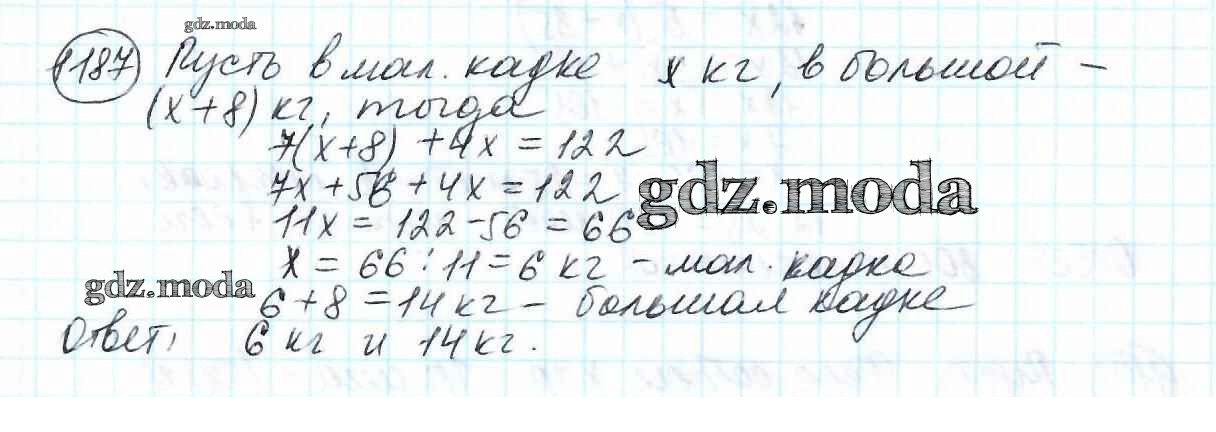 gdz.moda
1187 Пусть в мал. кадке x кг, в большой –
(x+8) кг, тогда
7(x+8) + 4x = 122
7x + 56 + 4x = 122
gdz.moda
11x = 122 - 56 = 66
x = 66 : 11 = 6 кг – мал. кадка
gdz.moda
6 + 8 = 14 кг – большая кадке
Ответ: 6 кг и 14 кг.